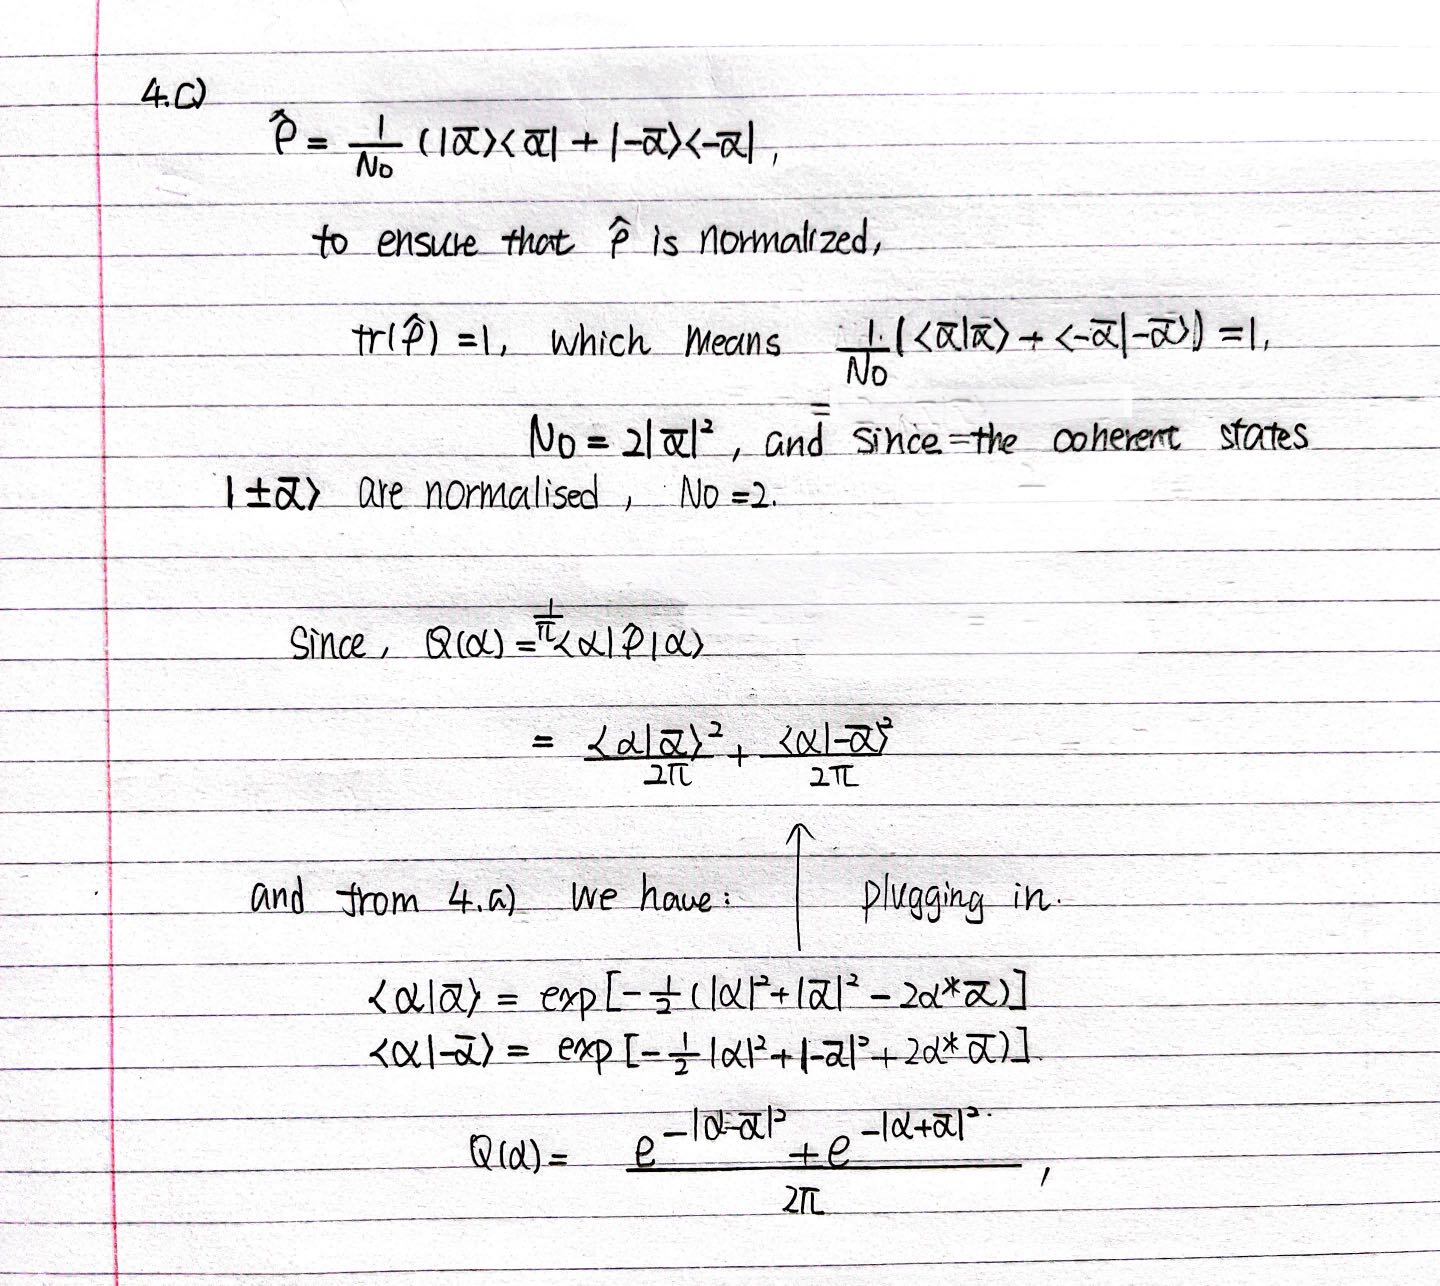 4.c)
ρ̂ = 1/N₀ (|ᾱ⟩⟨ᾱ| + |-ᾱ⟩⟨-ᾱ|,
to ensure that ρ̂ is normalized,
tr(ρ̂) = 1, which means 1/N₀ (⟨ᾱ|ᾱ⟩ + ⟨-ᾱ|-ᾱ⟩) = 1,
N₀ = 2|ᾱ|², and since the coherent states
|±ᾱ⟩ are normalised, N₀ = 2.
Since, Q(α) = 1/π ⟨α|ρ̂|α⟩
= ⟨α|ᾱ⟩²/2π + ⟨α|-ᾱ⟩²/2π
and from 4.a) we have: ↑ plugging in.
⟨α|ᾱ⟩ = exp[-1/2 (|α|² + |ᾱ|² - 2α*ᾱ)]
⟨α|-ᾱ⟩ = exp[-1/2 |α|² + |-ᾱ|² + 2α*ᾱ)].
Q(α) = (e^{-|α-ᾱ|²} + e^{-|α+ᾱ|²})/2π,